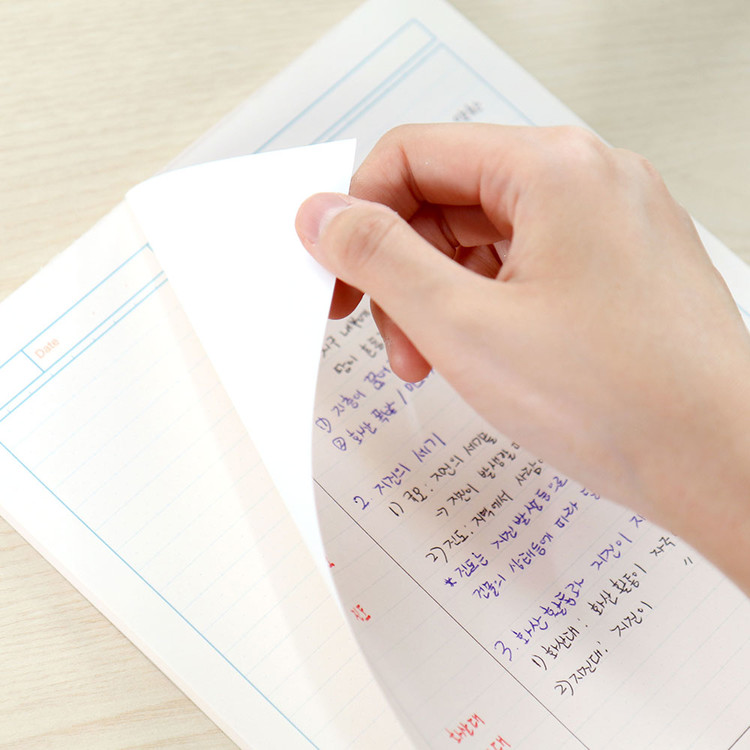 Date
지구 내부에
땅이 흔들
① 지층이 끊어
② 화산 폭발 /
2. 지진의 세기
1) 규모: 지진의 세기를
→ 지진이 발생할
2) 진도: 지역에서 사람이
* 진도는 지진 발생 동으로
건물의 상태등에 따라
3. 화산 활동과 지진이
1) 화산대: 화산 활동이 자주
2) 지진대: 지진이 "
진도
화산대